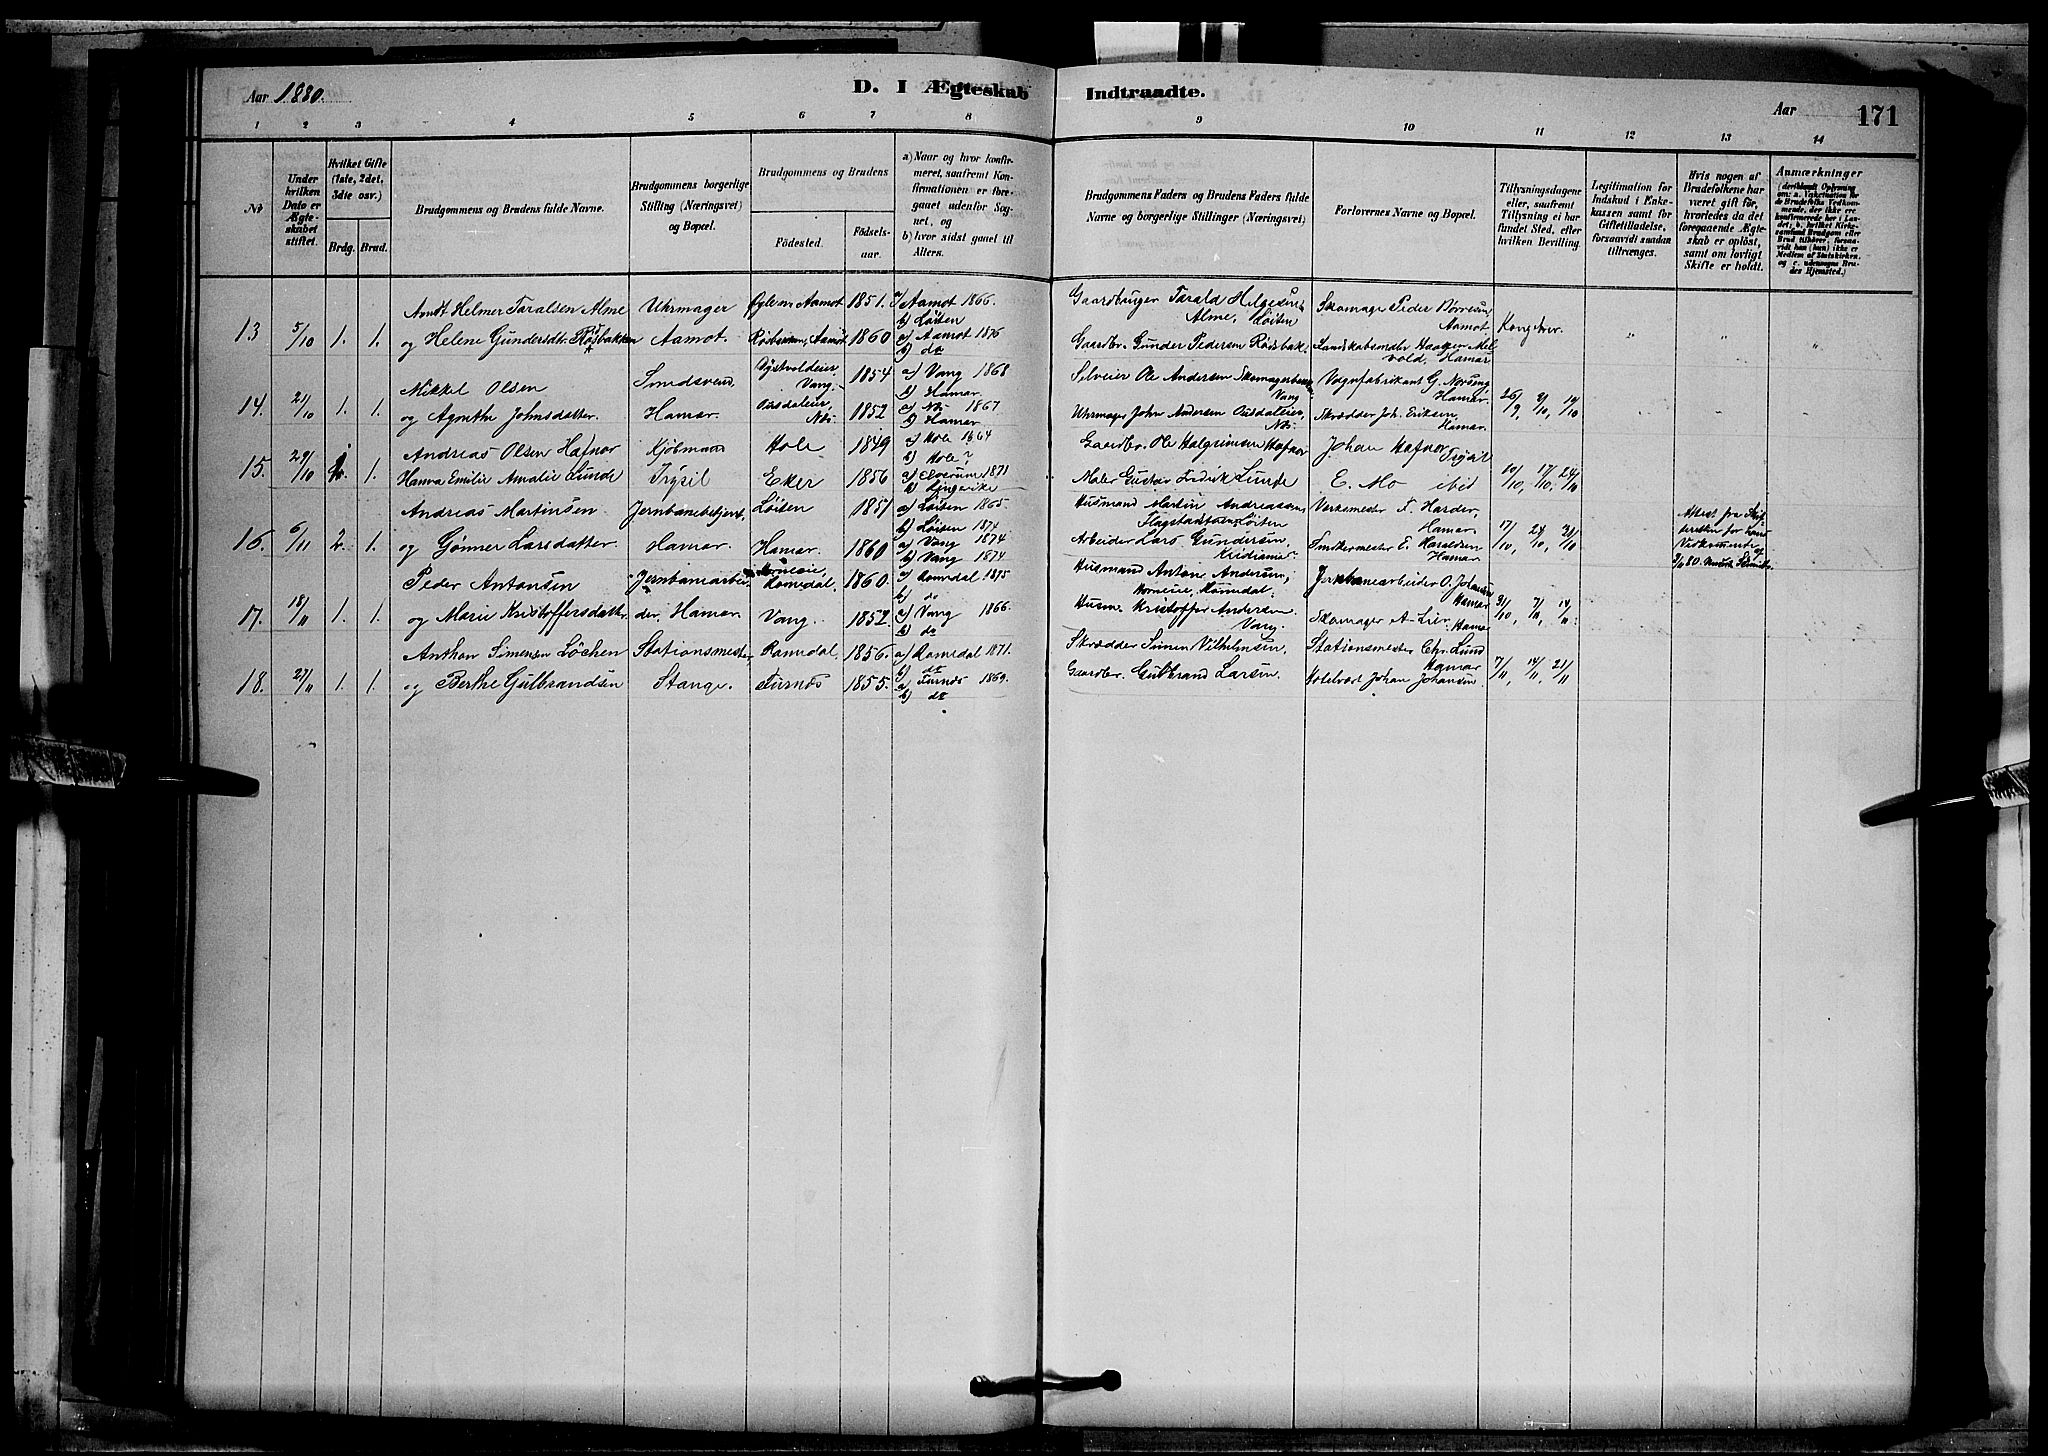 Aar 1880.
D. I Ægteskab Indtraadte.
Aar 171
1 2 3 4 5 6 7 8 9 10 11 12 13 14
Nr.
Under hvilken Dato er Ægteskabet stiftet.
Hvilket Gifte (1ste, 2det, 3die osv.)
Brdg. Brud.
Brudgommens og Brudens fulde Navne.
Brudgommens borgerlige Stilling (Næringsvei) og Bopæl.
Brudgommens og Brudens
Fødested. Fødselsaar.
a) Naar og hvor konfirmeret, saafremt Konfirmationen er foregaaet udenfor Sognet, og
b) hvor sidst gaaet til Alters.
Brudgommens Faders og Brudens Faders fulde Navne og borgerlige Stillinger (Næringsvei)
Forlovernes Navne og Bopæl.
Tillysningsdagene eller, saafremt Tillysning ei har fundet Sted, efter hvilken Bevilling.
Legitimation for Indskud i Enkekassen samt for Giftetilladelse, forsaavidt saadan tiltrænges.
Hvis nogen af Brudefolkene har været gift før, hvorledes da det foregaaende Ægteskab er opløst, samt om lovligt Skifte er holdt.
Anmærkninger
Arndt Helmer Taralsen Alme Uhrmager Aamot 1851. a) Aamot 1866. Gaardbruger Tarald Helgesen Skomager Peder
13 5/10 1. 1. b) Løiten Alme, Løiten Aamot.
og Helene Gundersdtr. Rødsbakken Aamot. Aamot 1860 a) Aamot 1876 Gaardbr. Gunder Pedersen Rødsbak.
b) do Hamar
Mikkel Olsen Smedsvend Vang. 1854 a) Vang 1868 Selveier Ole Andersen Vognfabrikant G. Norseng
14. 21/10 1. 1. b) Hamar Vang Hamar. 26/9, 3/10, 10/10
og Agnethe Johnsdatter. Hamar. Næs. 1852 a) Næs 1867 Uhrmager John Andersen Skrædder Joh. Eriksen
b) Hamar Næs. Hamar.
Andreas Olsen Hafnor Kjøbmand Hole 1849 a) Hole 1864 Gaardbr. Ole Halgrimsen Hafnor Johan Hafnor
15. 29/10 1. b) Hole? Trysil 10/10, 17/10, 24/10
Hanna Emilie Amalie Lunde Trysil Eker 1856 a) Elverum 1871 Maler Gustav Fredrik Lunde E. Mo ibid
b) Ringerike
Andreas Martinsen Jernbanebetjent, Løiten 1851 a) Løiten 1865 Husmand Martin Andreassen, Verksmester F. Harder,
16. 6/11 2. 1. b) Løiten 1874 Løiten Hamar. 17/10, 24/10, 31/10
og Gønner Larsdatter. Hamar. Hamar. 1860 a) Vang 1874 Arbeider Lars Gundersen, Snedkermester E. Haraldsen
b) Vang 1874 Kristiania. Hamar
Attest fra
Peder Antonsen Jernbanearbei- Romedal 1860. a) Romedal 1875 Husmand Anton Andersen, Jernbanearbeider O. Johansen
17. 18/11 1. 1. b) do Romedal. Hamar 31/10, 7/11, 14/11
og Marie Kristoffersdatter der, Hamar Vang. 1852 a) Vang 1866. Husm. Kristoffer Andersen Skomager A. Lier, Hamar
b) do Vang.
Anthon Simensen Løchen Stationsmester Romedal 1856. a) Romedal 1871. Skrædder Simen Vilhelmsen Stationsmester Chr. Lund
18. 27/11 1. 1. b) do Hamar 7/11, 14/11, 21/11
og Berthe Gulbrandsen Stange. Furnæs 1855. a) Furnæs 1869. Gaardbr. Gulbrand Larsen. Hotelvært Johan Johansen.
b) do